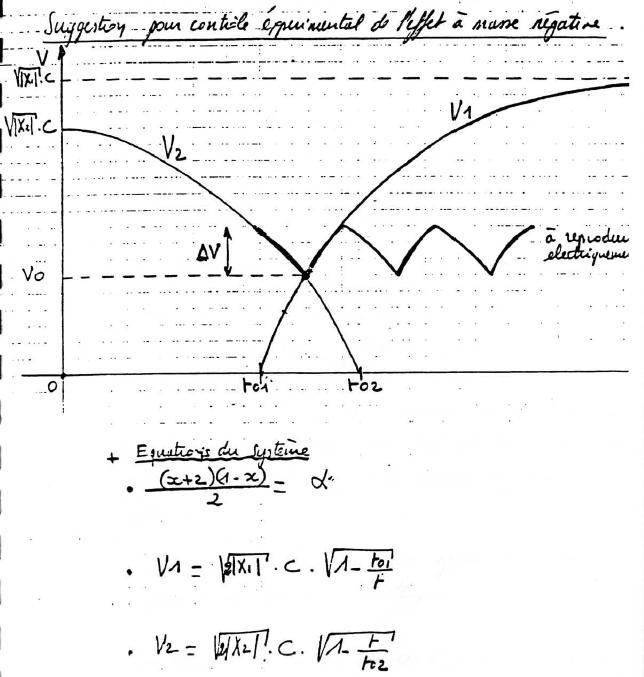 Suggestion pour contrôle éxperimental de l'effet à masse négative.
V
√|X1|.c
√|X2|.c
V2
V1
ΔV
V0
à reprodu
électriqueme
0
t01
t02
+ Equations du système
• (x+2)(1-x)/2 = α
• V1 = √2|X1| . C . √1-t01/t
• V2 = √2|X2| . C . √1-t/t02